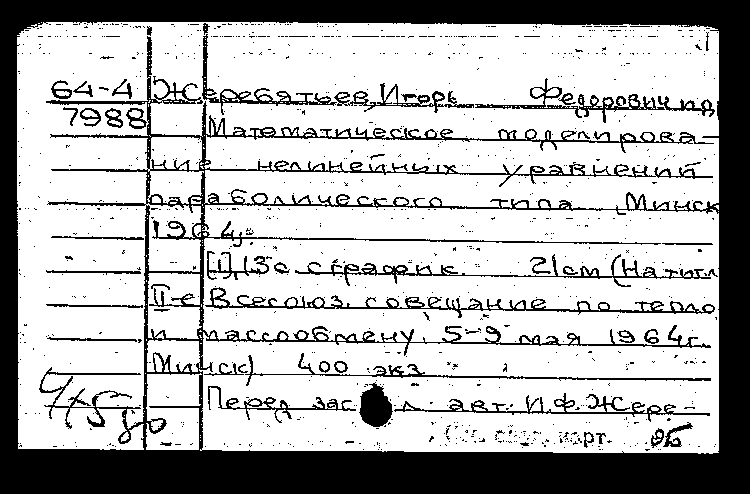 64-4 Жеребятьев, Игорь Федорович и др
7988
Математическое моделирова-
ние нелинейных уравнений
параболического типа [Минск
1964].
[1], 13с. с график. 21см (На титл
II-е Всесоюз. совещание по тепло
и массообмену. 5-9 мая 1964г.
Минск) 400 экз
Перед загл авт: И.Ф.Жере-
4/x 5
80
См. след. карт. ОБ